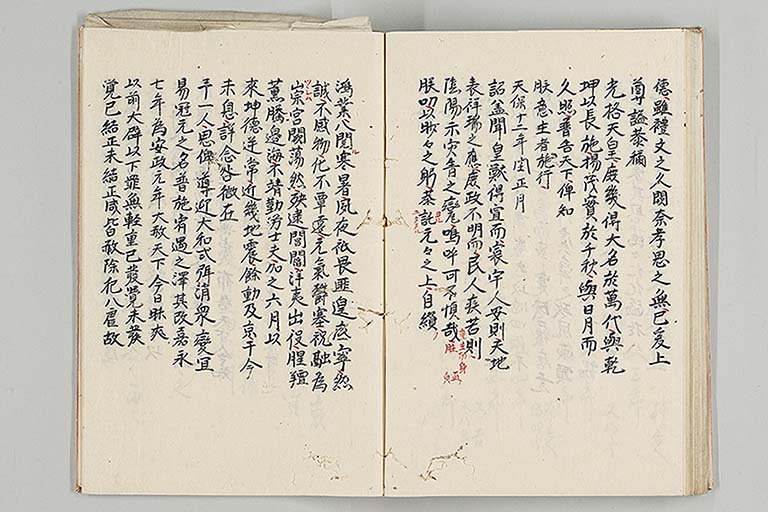 德雖禮文之久闕奈孝思之無已爰上
尊謚恭稱
光格天皇庶幾得大名於萬代與乾
坤以長施揚茂實於千秋與日月而
久照普告天下俾知
朕意主者施行
天保十二年閏正月
詔蓋聞皇猷得宜而寰宇人安則天地
表祥瑞之應庶政不明而民人疾苦則
陰陽示灾眚之變嗚呼可不慎哉
朕叨以眇々之躬忝託元々之上自纘
鴻業八閱寒暑夙夜祗畏匪遑底寧然
誠不感物化不覃遠元氣欝塞祝融為
崇宮闕蕩然殃逮閭閻洋夷出没腥羶
薫騰邊海不靖勤勞士夫加之六月以
來坤德逆常近畿地震餘動及京于今
未息詳念咎徵丘
予一人思俾導迎大和式弭消衆變宜
易冠元之名普施宥過之澤其改嘉永
七年為安政元年大赦天下今日昧爽以
以前大辟以下罪無輕重已發覺未發
覺已結正未結正咸皆赦除犯八虐故